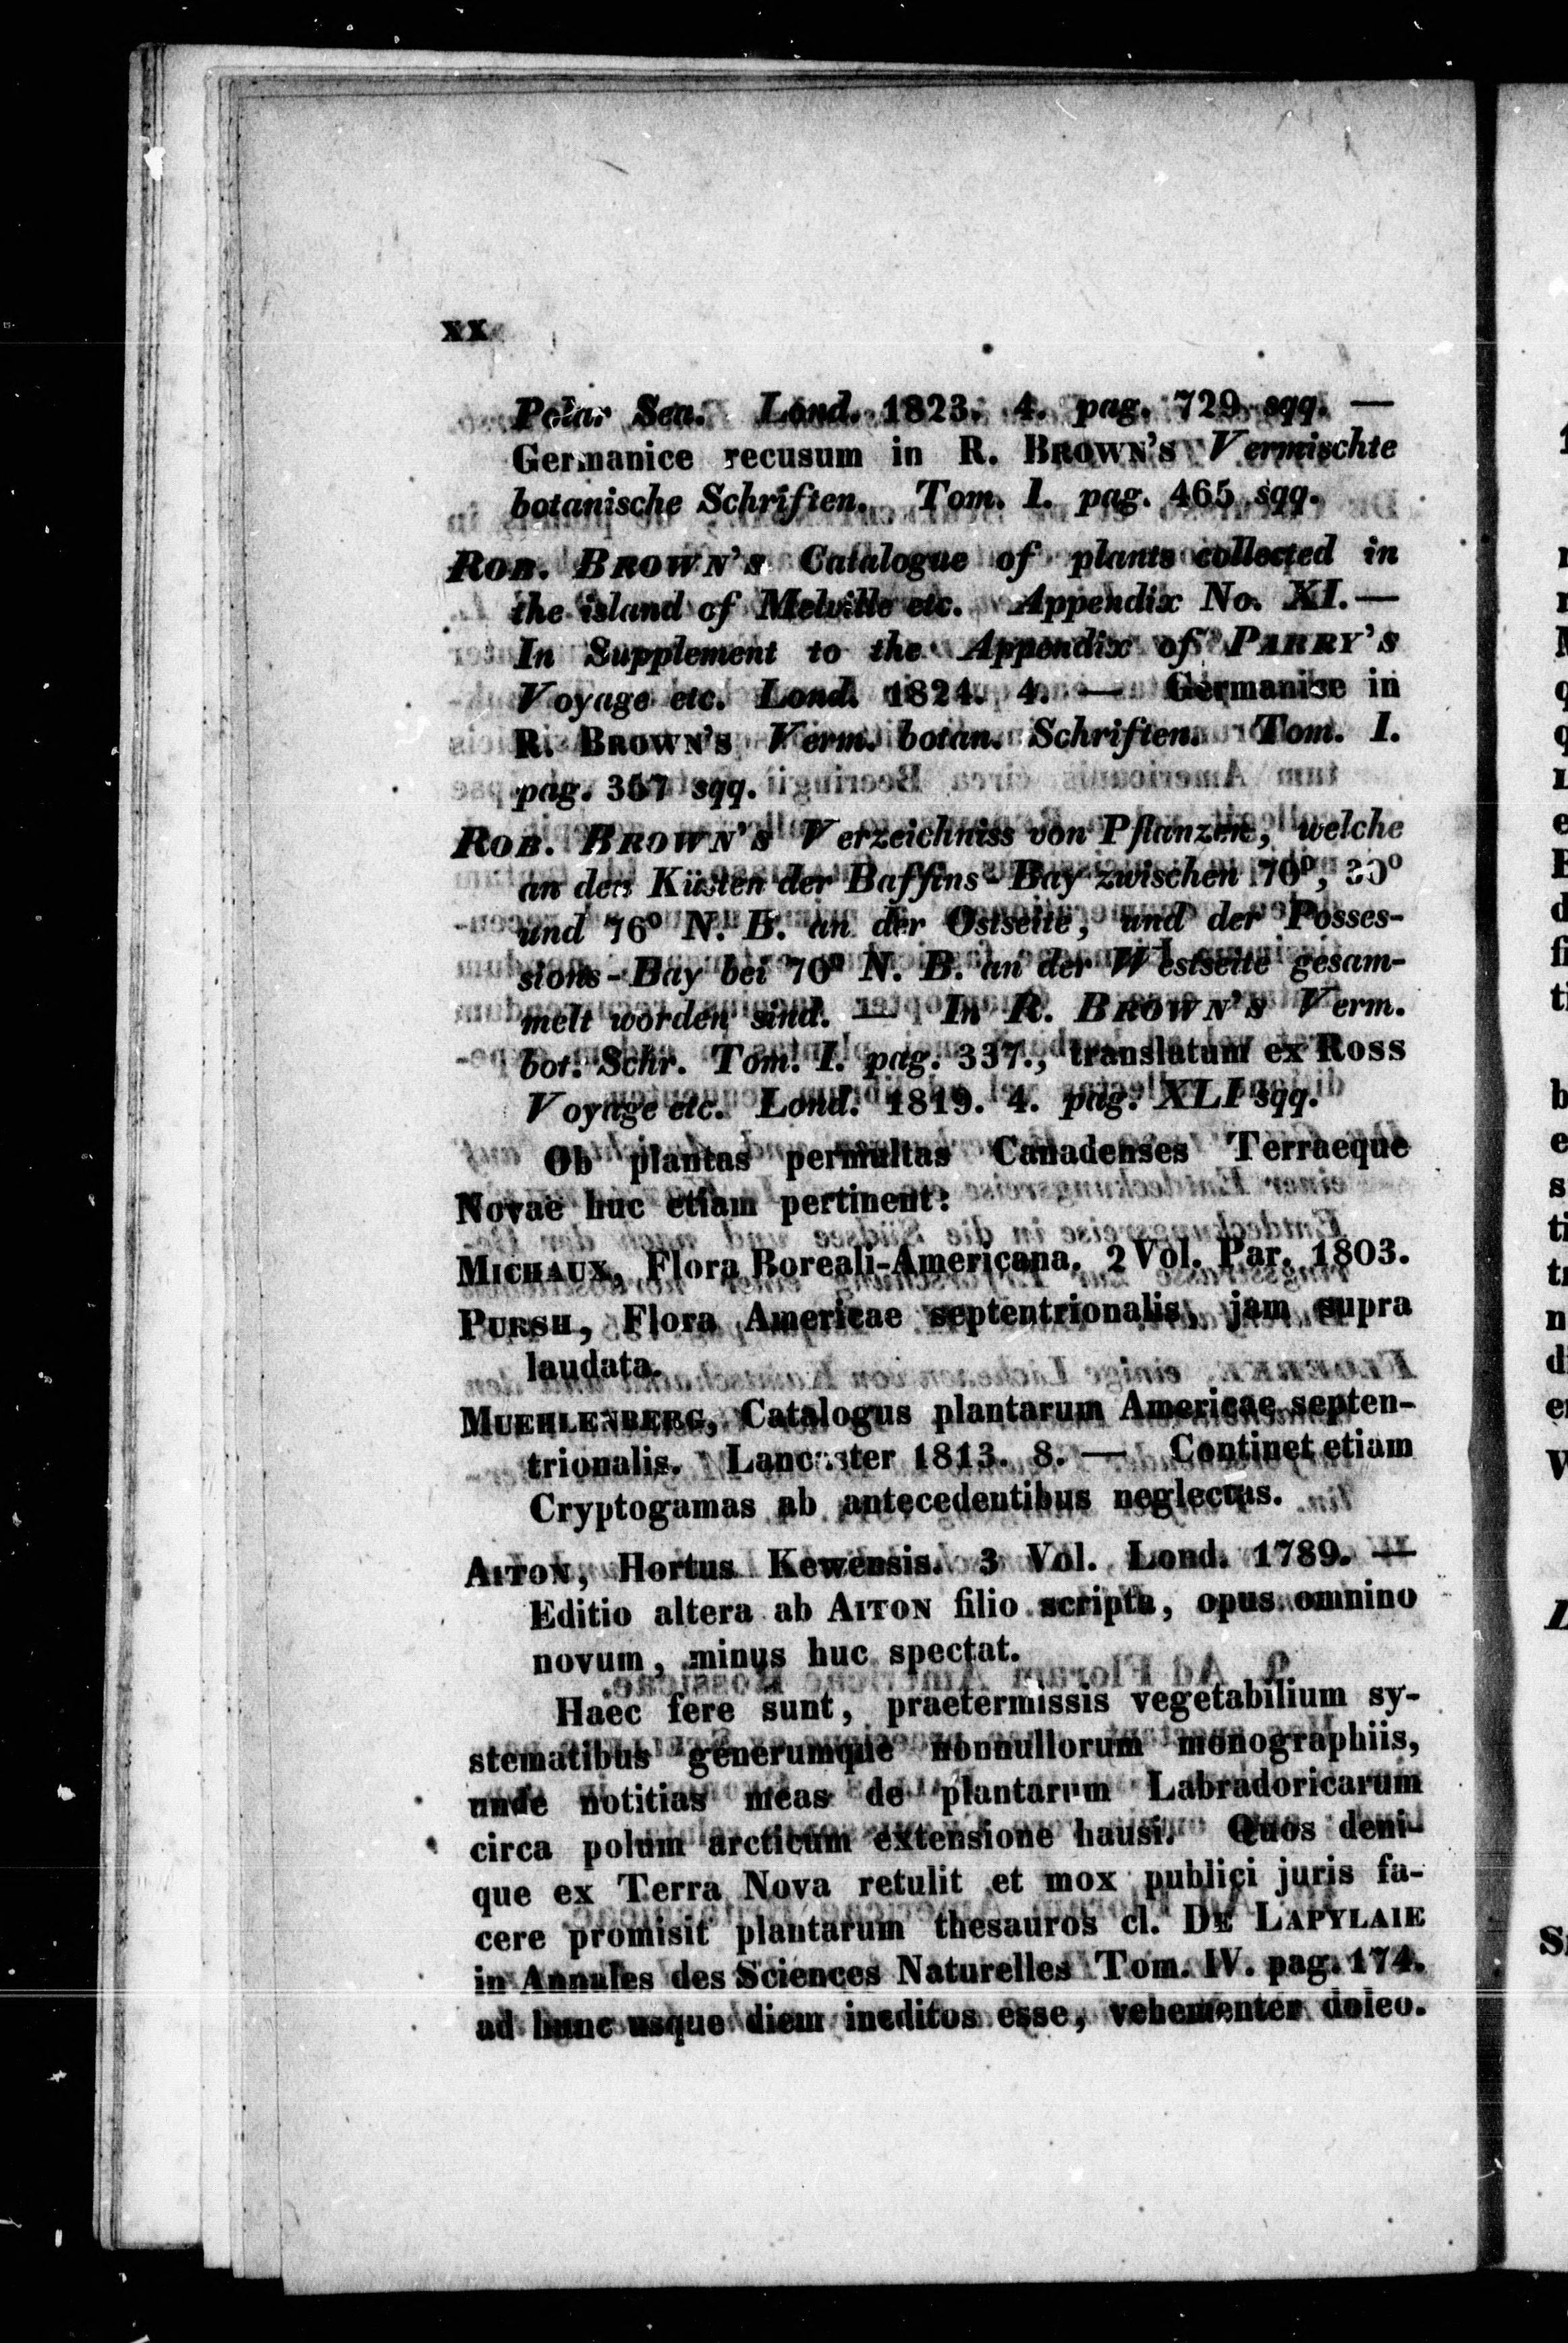 xx
Polar Sea. Lond. 1823. 4. pag. 729 sqq. —
Germanice recusum in R. BROWN'S Vermischte
botanische Schriften. Tom. I. pag. 465 sqq.
ROB. BROWN's Catalogue of plants collected in
the island of Melville etc. Appendix No. XI. —
In Supplement to the Appendix of PARRY's
Voyage etc. Lond. 1824. 4. — Germanice in
R. BROWN'S Verm. botan. Schriften. Tom. I.
pag. 367 sqq.
ROB. BROWN's Verzeichniss von Pflanzen, welche
an den Küsten der Baffins-Bay zwischen 70°, 30°
und 76° N. B. an der Ostseite, und der Posses-
sions-Bay bei 70° N. B. an der Westseite gesam-
melt worden sind. — In R. BROWN's Verm.
bot. Schr. Tom. I. pag. 337., translatum ex Ross
Voyage etc. Lond. 1819. 4. pag. XLI sqq.
Ob plantas permultas Canadenses Terraeque
Novae huc etiam pertinent:
MICHAUX, Flora Boreali-Americana. 2 Vol. Par. 1803.
PURSH, Flora Americae septentrionalis, jam supra
laudata.
MUEHLENBERG, Catalogus plantarum Americae septen-
trionalis. Lancaster 1813. 8. — Continet etiam
Cryptogamas ab antecedentibus neglectas.
AITON, Hortus Kewensis. 3 Vol. Lond. 1789. —
Editio altera ab AITON filio scripta, opus omnino
novum, minus huc spectat.
Haec fere sunt, praetermissis vegetabilium sy-
stematibus generumque nonnullorum monographiis,
unde notitias meas de plantarum Labradoricarum
circa polum arcticum extensione hausi. Quos deni-
que ex Terra Nova retulit et mox publici juris fa-
cere promisit plantarum thesauros cl. DE LAPYLAIE
in Annales des Sciences Naturelles Tom. IV. pag. 174.
ad hunc usque diem ineditos esse, vehementer doleo.